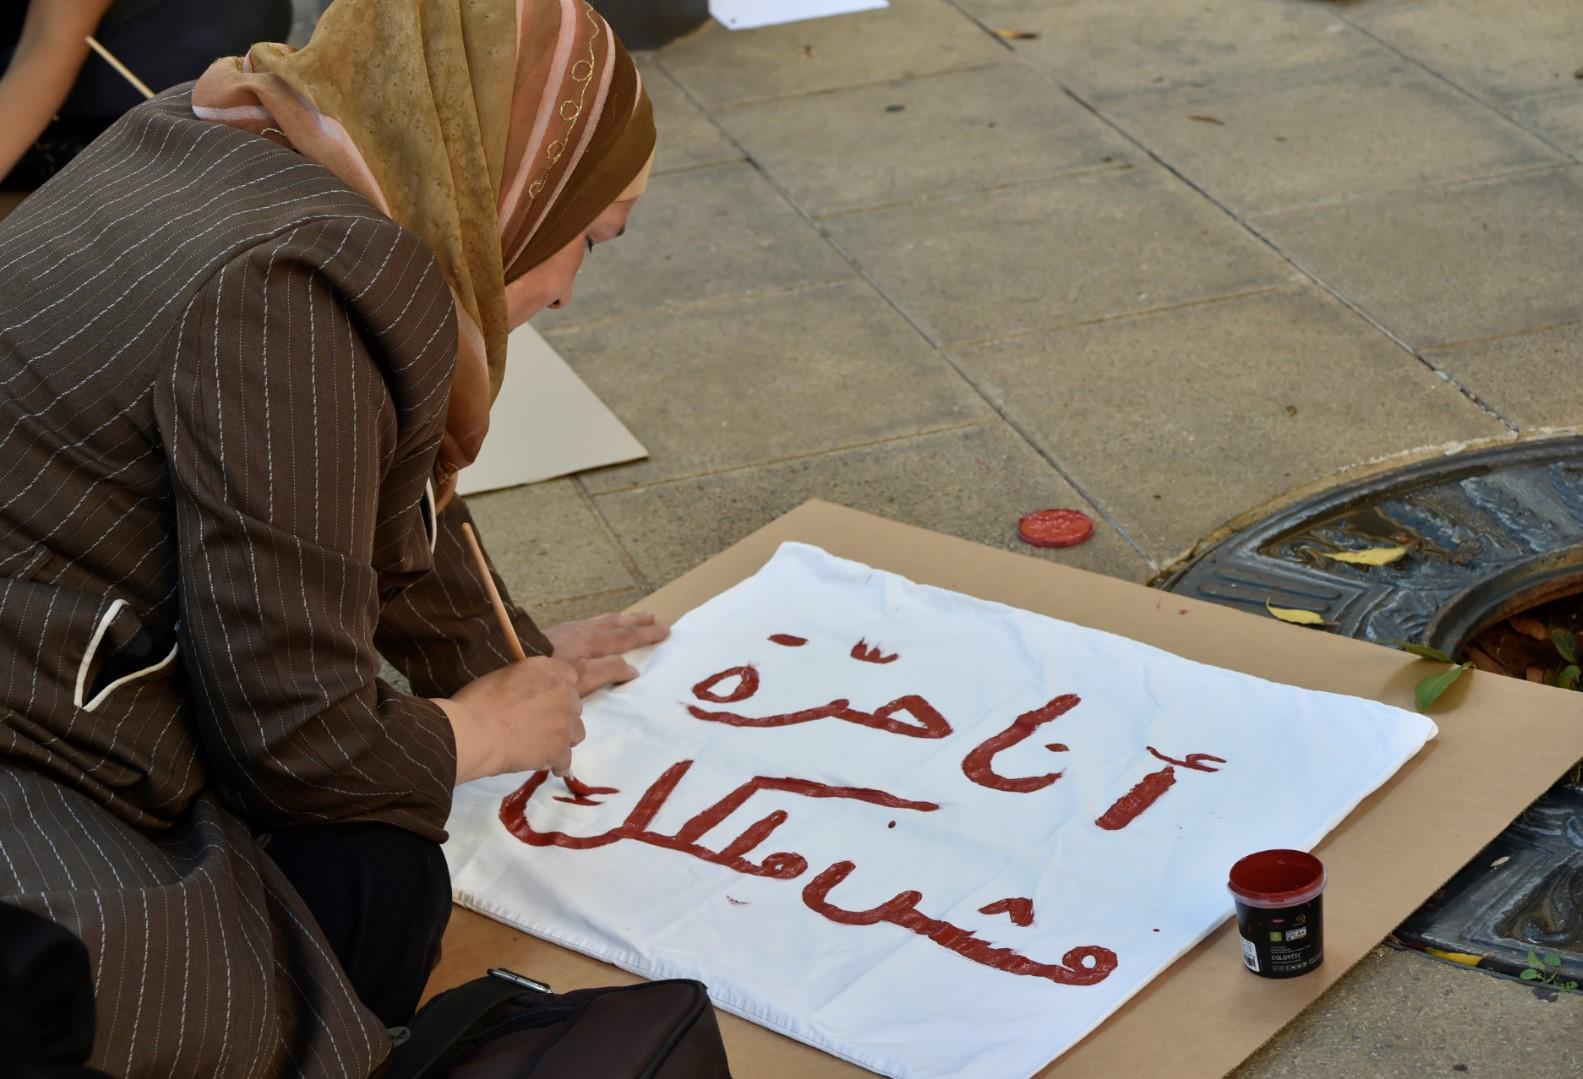 أنا حرّة
مش ملكك
COLORTEK